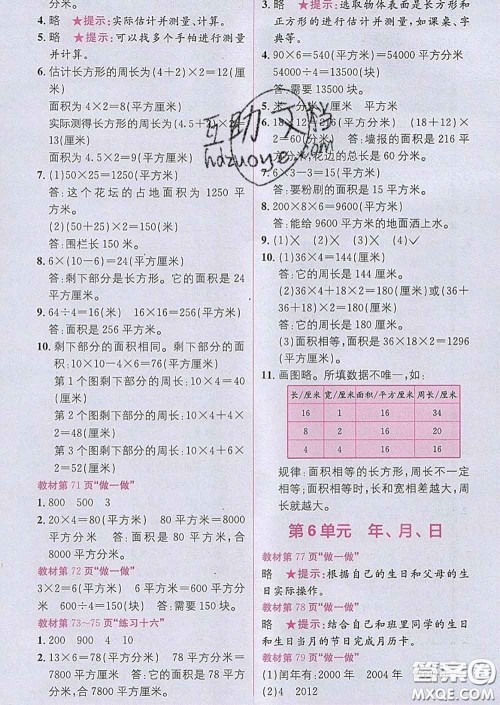 分米。
3. 略 ★提示：实际估计并测量、计算。
5. 略 ★提示：可以找多个手帕进行测量
并计算。
6. 估计长方形的周长为(4+2)×2=12(厘
米)
面积为 4×2=8(平方厘米)
实际测得长方形的周长为(4.5+2)×2=13
(厘米)
面积为 4.5×2=9(平方厘米)
7. (1)50×25=1250(平方米)
答：这个花坛的占地面积为 1250 平
方米。
(2)(50+25)×2=150(米)
答：围栏长 150 米。
8. 6×(10-6)=24(平方厘米)
答：剩下部分是长方形。它的面积是 24
平方厘米。
9. 64÷4=16(米) 16×16=256(平方米)
答：面积是 256 平方米。
10. 剩下部分的面积相同。剩下部分的面
积：10×10-4×6=76(平方厘米)
第 1 个图剩下部分的周长：10×4=40
(厘米)
第 2 个图剩下部分的周长：10×4+6×
2=52(厘米)
第 3 个图剩下部分的周长：10×4+4×
2=48(厘米)
第 4 个图剩下部分的周长：10×4+6×
2=52(厘米)
教材第 71 页“做一做”
1. 800 500 3
2. 20×4=80(平方米) 80平方米=8000
平方分米
答：面积是 80 平方米。合 8000 平方
分米。
教材第 72 页“做一做”
3×2=6(平方米) 6平方米=600平方分
米 600÷4=150(块)
答：一共要用 150 块。
教材第 73~75 页“练习十六”
1. 200 900 4 10
2. 13×6=78(平方米) 78 平方米=
7800 平方分米
答：它的面积是 78 平方米，合 7800 平
方分米。
3. 略 ★提示：选取物体表面是长方形和
正方形的进行估计并测量。如课桌、字
典等。
4. 90×6=540(平方米)=54000平方分米
54000÷4=13500(块)
答：需要 13500 块。
5. 米 平方厘米 平方米
6. 18×12=216(平方分米) (18+12)×
2=60(分米) 答：墙报的面积是 216 平
方分米，花边的总长是 60 分米。
答：要粉刷的面积是 15 平方米。
答：能给 9600 平方米的地面洒上水。
9. (1)× (2)× (3)× (4)✓
10. (1)36×4=144(厘米)
答：它的周长是 144 厘米。
(2)36×4+36×2-36×2=180(厘米)或(36+
36+18)×2=180(厘米)
答：它的周长是 180 厘米。
(3)36×2=18(厘米) 36×36=1296
(平方厘米)
11. 画图略。所填数据不唯一，如：
长/厘米 宽/厘米 面积/平方厘米 周长/厘米
16 1 16 34
8 2 16 20
4 4 16 16
规律：面积相等的长方形，周长不一定
相等，面积一定时，长和宽相差越大，周
长就越大。
第6单元 年、月、日
教材第 77 页“做一做”
略 ★提示：根据自己的生日和父母的生
日实际操作。
教材第 78 页“做一做”
略 ★提示：结合自己和班里同学的生日
和生日当月的节日完成月历卡。
教材第 79 页“做一做”
(1)闰年有：2000 年 2004 年
(2)4 2012
互助文档
hdzuoye.com
答案圈
MXQE.COM